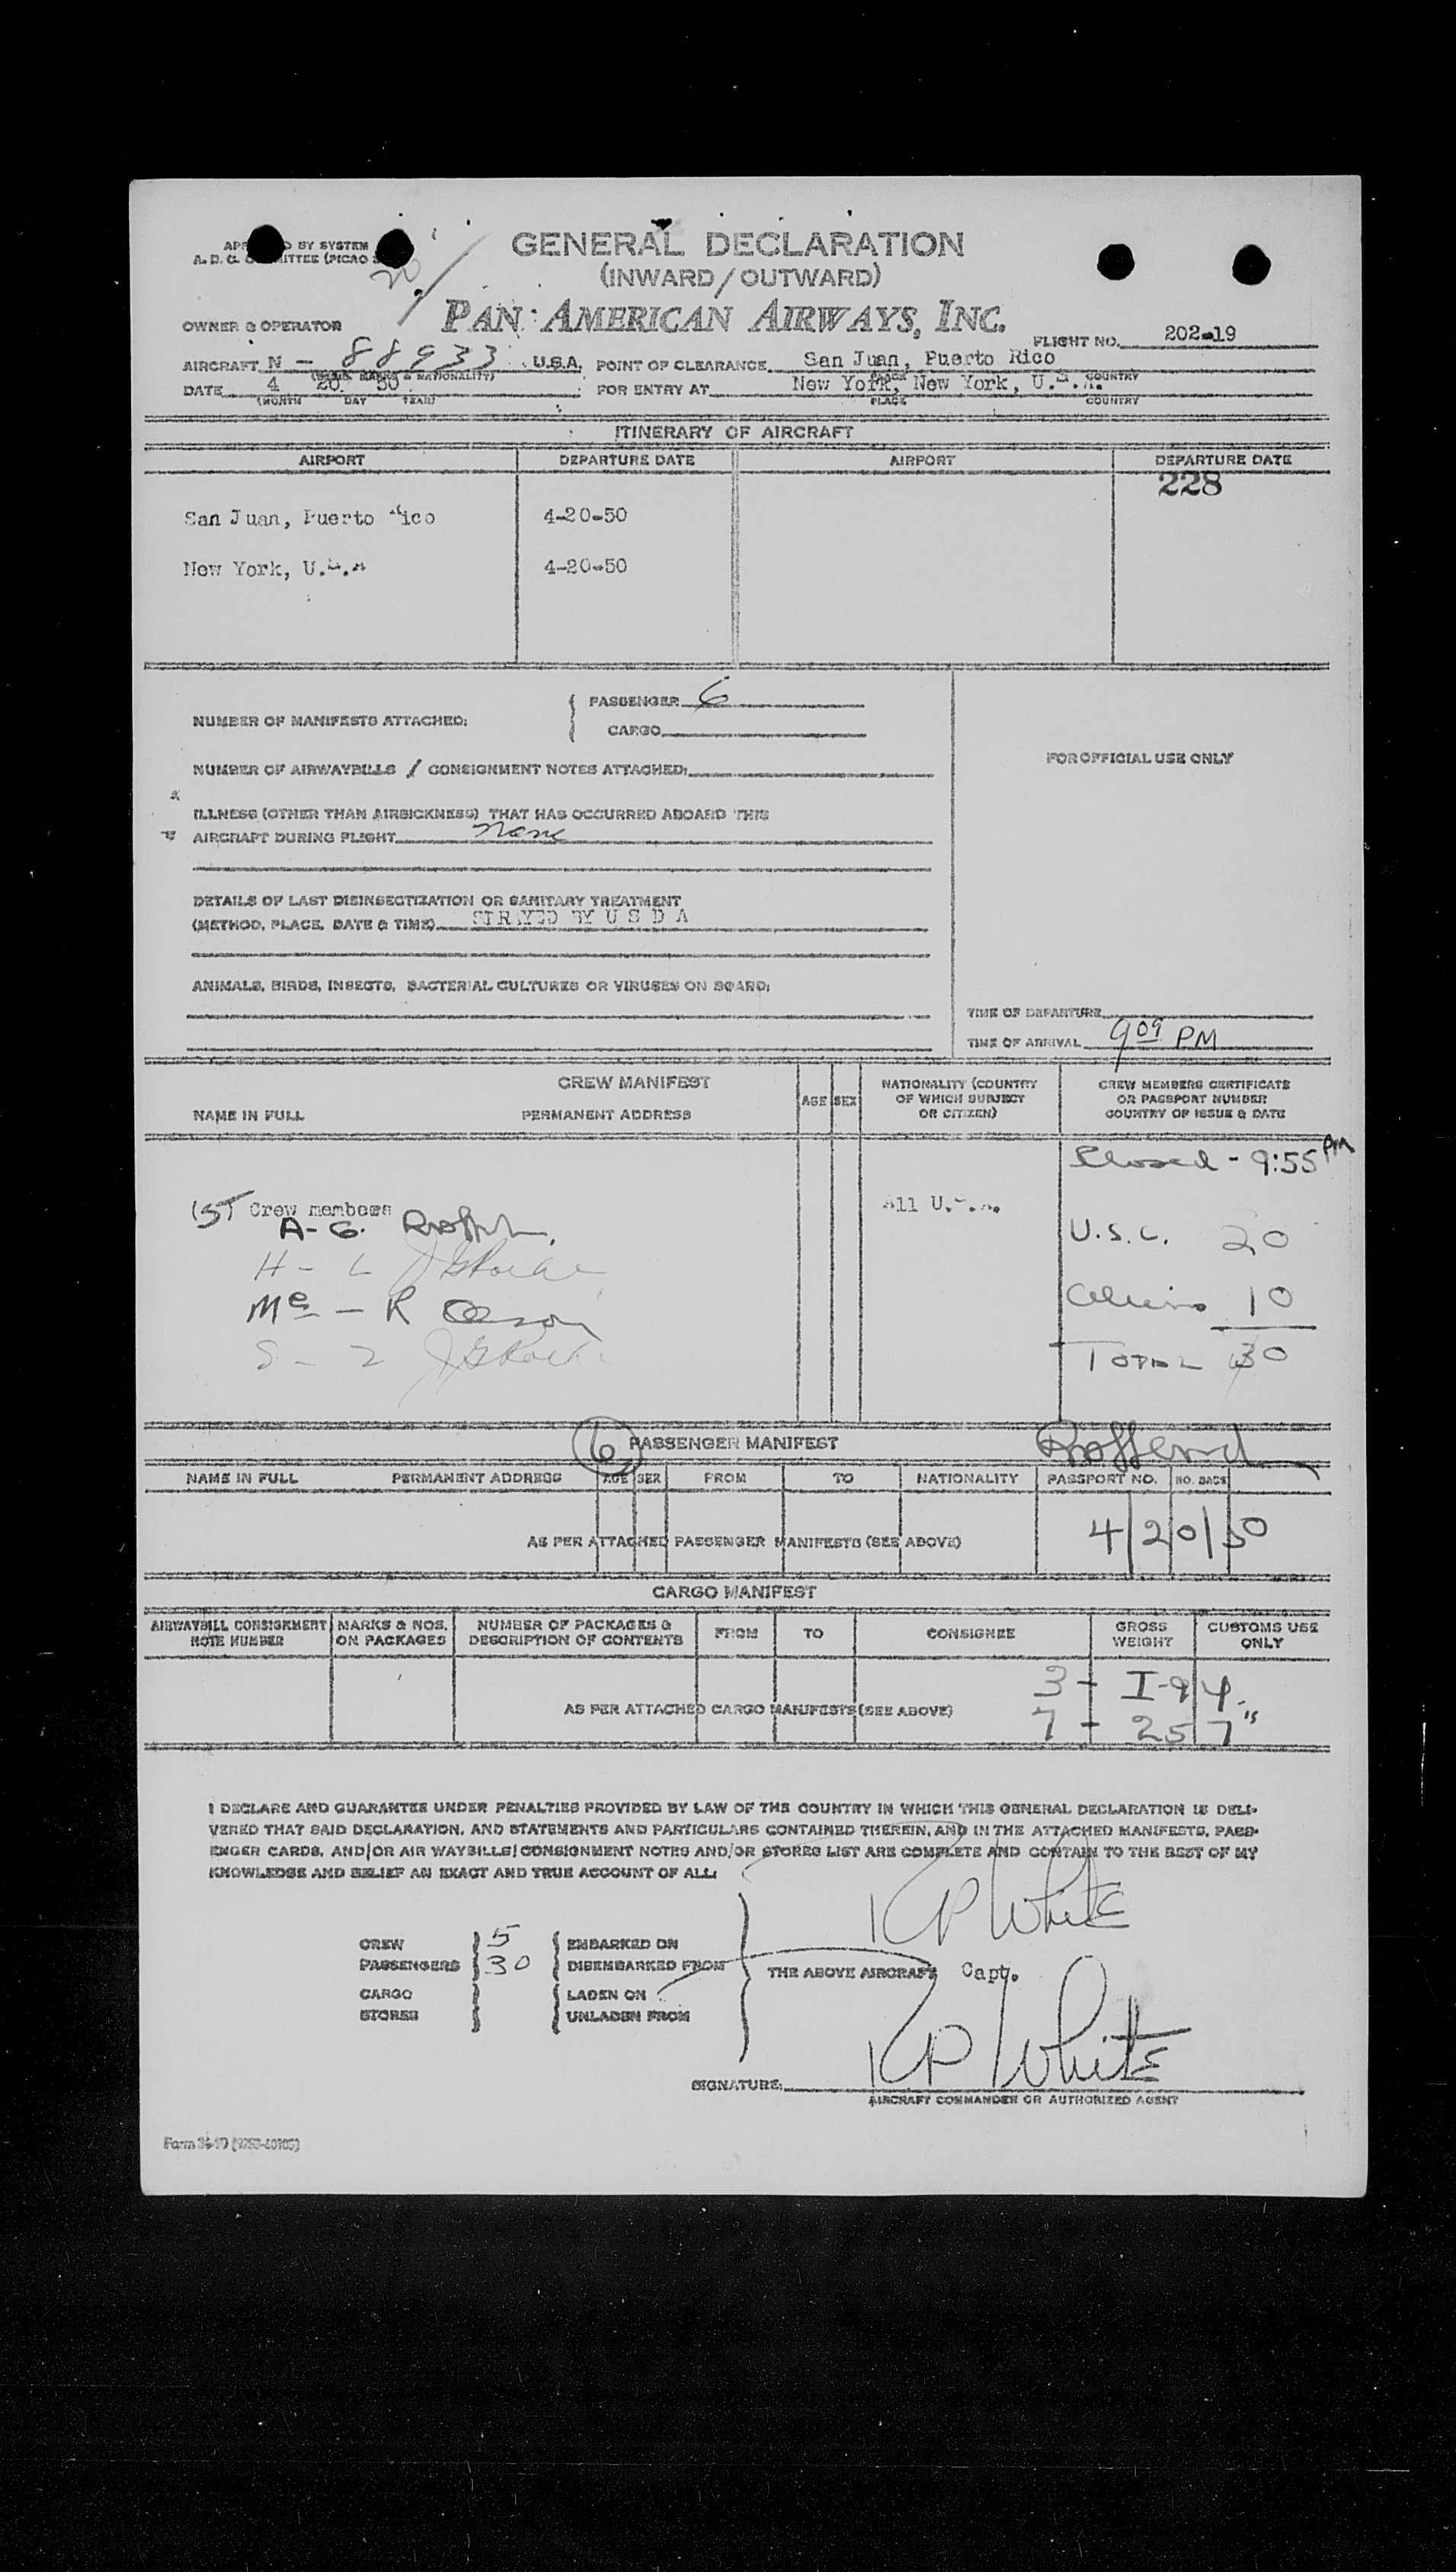 GENERAL DECLARATION
(INWARD/OUTWARD)
BY SYSTEM
PAN AMERICAN AIRWAYS, INC.
OWNER & OPERATOR
FLIGHT NO. 202-19
AIRCRAFT N - 88933 U.S.A. POINT OF CLEARANCE San Juan, Puerto Rico
DATE 4 20 50 FOR ENTRY AT New York, New York, U.S.A.
(MONTH DAY YEAR) PLACE COUNTRY
ITINERARY OF AIRCRAFT
AIRPORT DEPARTURE DATE AIRPORT DEPARTURE DATE
228
San Juan, Puerto Rico 4-20-50
New York, U.S.A 4-20-50
PASSENGER 6
NUMBER OF MANIFESTS ATTACHED:
CARGO
FOR OFFICIAL USE ONLY
NUMBER OF AIRWAYBILLS / CONSIGNMENT NOTES ATTACHED:
ILLNESS (OTHER THAN AIRSICKNESS) THAT HAS OCCURRED ABOARD THIS
AIRCRAFT DURING FLIGHT none
DETAILS OF LAST DISINSECTIZATION OR SANITARY TREATMENT
(METHOD, PLACE, DATE & TIME) SPRAYED BY U S D A
ANIMALS, BIRDS, INSECTS, BACTERIAL CULTURES OR VIRUSES ON BOARD:
TIME OF DEPARTURE
TIME OF ARRIVAL 9 09 PM
CREW MANIFEST
NAME IN FULL PERMANENT ADDRESS AGE SEX NATIONALITY (COUNTRY OF WHICH SUBJECT OR CITIZEN) CREW MEMBERS CERTIFICATE OR PASSPORT NUMBER COUNTRY OF ISSUE & DATE
Closed - 9:55 PM
(5) Crew members All U.S.A.
A- G.
U.S.C. 20
H - L
Me - R Olson
Aliens 10
S - Z
Total 30
6 PASSENGER MANIFEST
NAME IN FULL PERMANENT ADDRESS AGE SEX FROM TO NATIONALITY PASSPORT NO. NO. BAGS
AS PER ATTACHED PASSENGER MANIFESTS (SEE ABOVE)
4/20/50
CARGO MANIFEST
AIRWAYBILL CONSIGNMENT NOTE NUMBER MARKS & NOS. ON PACKAGES NUMBER OF PACKAGES & DESCRIPTION OF CONTENTS FROM TO CONSIGNEE GROSS WEIGHT CUSTOMS USE ONLY
3 - I-94
AS PER ATTACHED CARGO MANIFESTS (SEE ABOVE)
7 - 257"
I DECLARE AND GUARANTEE UNDER PENALTIES PROVIDED BY LAW OF THE COUNTRY IN WHICH THIS GENERAL DECLARATION IS DELI-
VERED THAT SAID DECLARATION, AND STATEMENTS AND PARTICULARS CONTAINED THEREIN, AND IN THE ATTACHED MANIFESTS, PASS-
ENGER CARDS, AND/OR AIR WAYBILLS/CONSIGNMENT NOTES AND/OR STORES LIST ARE COMPLETE AND CONTAIN TO THE BEST OF MY
KNOWLEDGE AND BELIEF AN EXACT AND TRUE ACCOUNT OF ALL:
KP White
CREW 5 EMBARKED ON
PASSENGERS 30 DISEMBARKED FROM THE ABOVE AIRCRAFT Capt.
CARGO LADEN ON
STORES UNLADEN FROM
KP White
SIGNATURE:
AIRCRAFT COMMANDER OR AUTHORIZED AGENT